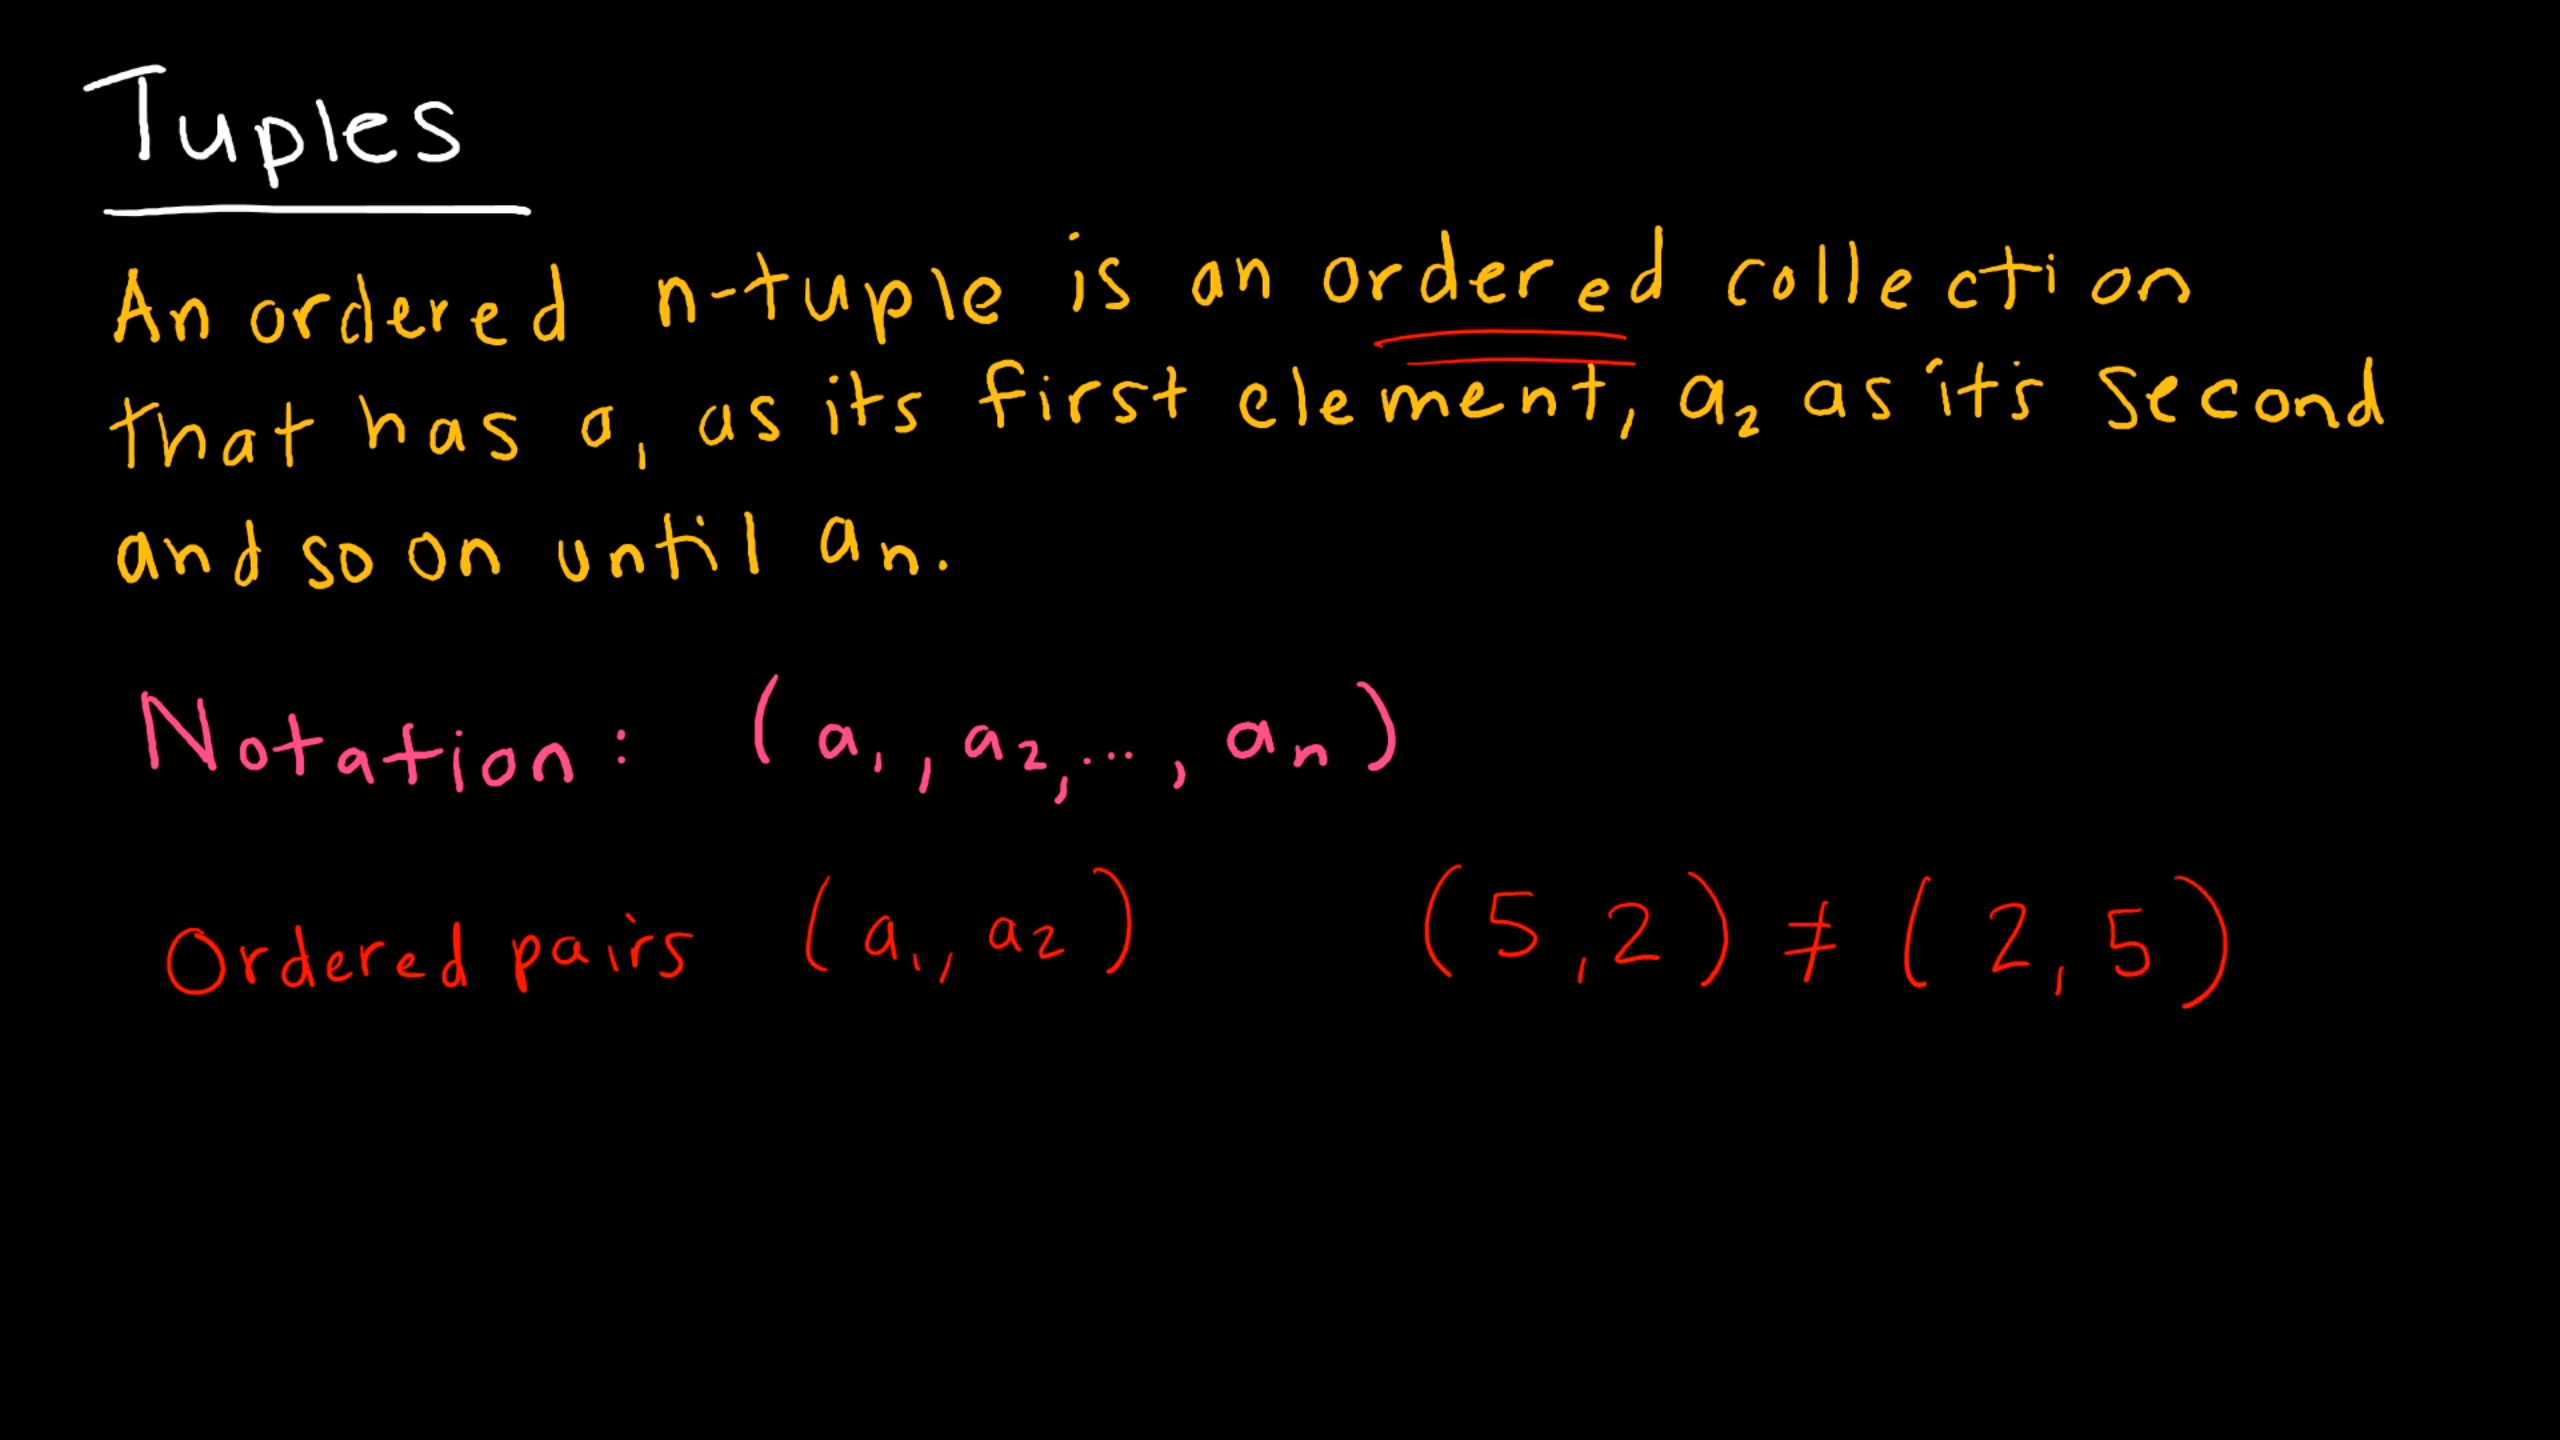 Tuples
An ordered n-tuple is an ordered collection
that has a₁ as its first element, a₂ as it's second
and so on until aₙ.
Notation: (a₁, a₂, ..., aₙ)
Ordered pairs (a₁, a₂) (5,2) ≠ (2,5)